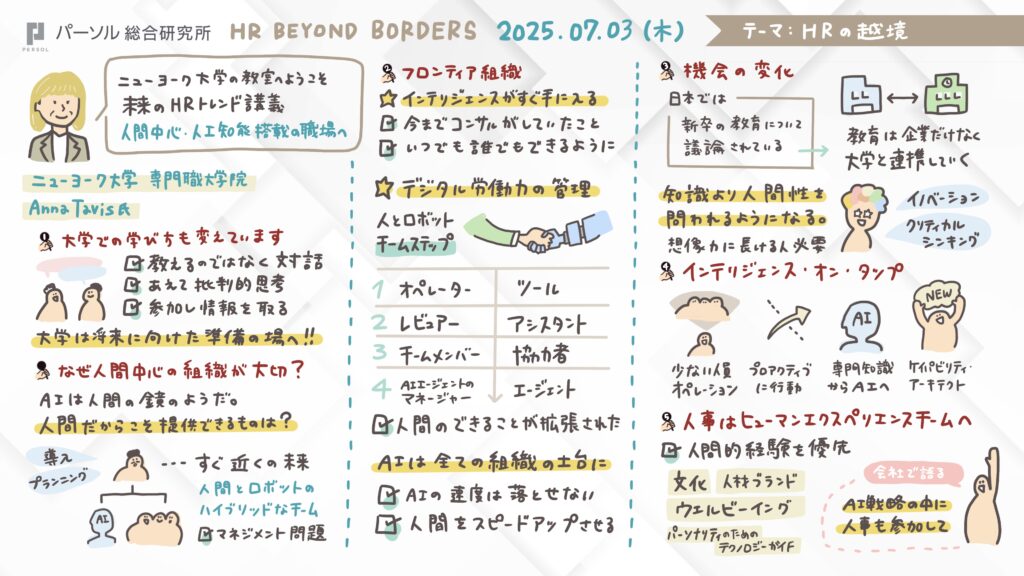 PERSOL
パーソル 総合研究所
HR BEYOND BORDERS
2025.07.03(木)
テーマ:HRの越境
ニューヨーク大学の教室へようこそ
未来のHRトレンド講義
人間中心・人工知能搭載の職場へ
ニューヨーク大学 専門職大学院
Anna Tavis氏
1 大学での学び方も変えています
教えるのではなく対話
あえて批判的思考
参加し情報を取る
大学は将来に向けた準備の場へ!!
なぜ人間中心の組織が大切?
AIは人間の鏡のようだ。
人間だからこそ提供できるものは?
導入
プランニング
---すぐ近くの未来
人間とロボットの
ハイブリッドなチーム
マネジメント問題
AI
2 フロンティア組織
インテリジェンスがすぐ手に入る
今までコンサルがしていたこと
いつでも誰でもできるように
デジタル労働力の管理
人とロボット
チームステップ
1 オペレーター ツール
2 レビュアー アシスタント
3 チームメンバー 協力者
4 AIエージェントの
マネージャー エージェント
人間のできることが拡張された
AIは全ての組織の土台に
AIの速度は落とせない
人間をスピードアップさせる
3 機会の変化
日本では
新卒の教育について
議論されている
教育は企業だけなく
大学と連携していく
知識より人間性を
問われるようになる。
想像力に長ける人必要
イノベーション
クリティカル
シンキング
4 インテリジェンス・オン・タップ
少ない人員
オペレーション
プロアクティブ
に行動
AI
専門知識
からAIへ
NEW
ケイパビリティ・
アーキテクト
5 人事はヒューマンエクスペリエンスチームへ
人間的経験を優先
文化
人材ブランド
ウエルビーイング
パーソナリティのための
テクノロジーガイド
会社で語る
AI戦略の中に
人事も参加して